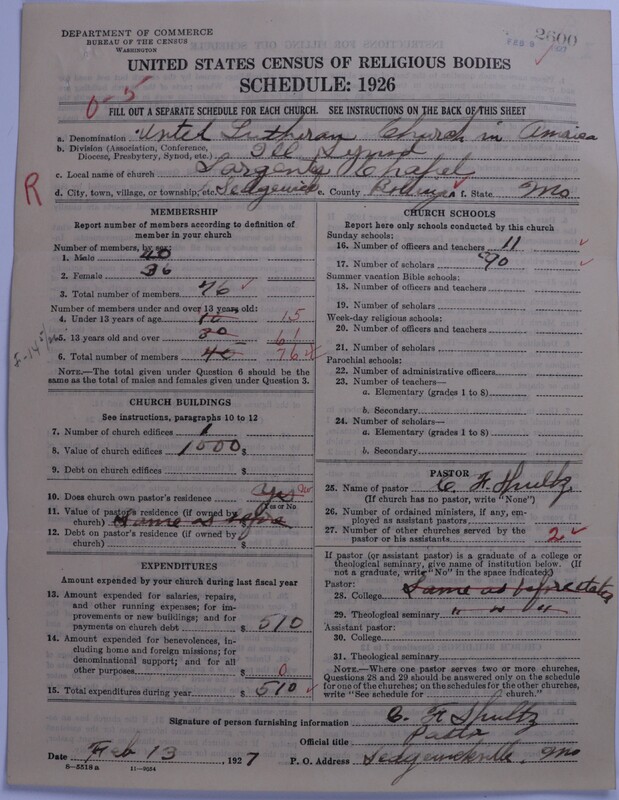 DEPARTMENT OF COMMERCE
BUREAU OF THE CENSUS
WASHINGTON
2600
UNITED STATES CENSUS OF RELIGIOUS BODIES
SCHEDULE: 1926
0-5
FILL OUT A SEPARATE SCHEDULE FOR EACH CHURCH. SEE INSTRUCTIONS ON THE BACK OF THIS SHEET
a. Denomination United Lutheran Church in America
b. Division (Association, Conference, Diocese, Presbytery, Synod, etc.) Ill Synod
c. Local name of church Sargents Chapel
R
d. City, town, village, or township, etc. e. County f. State Mo
MEMBERSHIP
Report number of members according to definition of
member in your church
Number of members, by sex:
1. Male 40
2. Female 36
3. Total number of members 76
Number of members under and over 13 years old:
4. Under 13 years of age 10 15
5. 13 years old and over 30 61
6. Total number of members 40 76
NOTE.—The total given under Question 6 should be
the same as the total of males and females given under Question 3.
CHURCH BUILDINGS
See instructions, paragraphs 10 to 12
7. Number of church edifices 1
8. Value of church edifices 1500 $
9. Debt on church edifices $
10. Does church own pastor's residence yes no
Yes or No
11. Value of pastor's residence (if owned by
church) same as before
12. Debt on pastor's residence (if owned by
church) $
EXPENDITURES
Amount expended by your church during last fiscal year
13. Amount expended for salaries, repairs,
and other running expenses; for im-
provements or new buildings; and for
payments on church debt $ 510
14. Amount expended for benevolences,
including home and foreign missions; for
denominational support; and for all
other purposes $ 0
15. Total expenditures during year $ 510
CHURCH SCHOOLS
Report here only schools conducted by this church
Sunday schools:
16. Number of officers and teachers 11
17. Number of scholars 90
Summer vacation Bible schools:
18. Number of officers and teachers
19. Number of scholars
Week-day religious schools:
20. Number of officers and teachers
21. Number of scholars
Parochial schools:
22. Number of administrative officers
23. Number of teachers—
a. Elementary (grades 1 to 8)
b. Secondary
24. Number of scholars—
a. Elementary (grades 1 to 8)
b. Secondary
PASTOR
25. Name of pastor C. F. Shultz
(If church has no pastor, write "None")
26. Number of ordained ministers, if any, em-
ployed as assistant pastors
27. Number of other churches served by the
pastor or his assistants 2
If pastor (or assistant pastor) is a graduate of a college or
theological seminary, give name of institution below. (If
not a graduate, write "No" in the space indicated)
Pastor:
28. College Same as before stated
29. Theological seminary " " "
Assistant pastor:
30. College
31. Theological seminary
NOTE.—Where one pastor serves two or more churches,
Questions 28 and 29 should be answered only on the schedule
for one of the churches; on the schedules for the other churches,
write "See schedule for church."
Signature of person furnishing information C. F. Shultz
Official title Pastor
Date Feb 13, 1927 P. O. Address Sedgewickville, Mo
8-5518a 11-9034